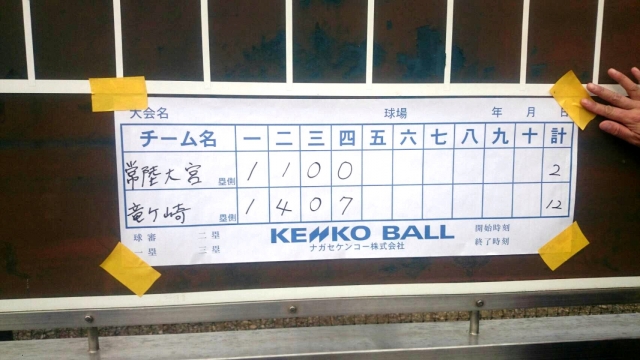 大会名 球場 年 月 日
チーム名 一 二 三 四 五 六 七 八 九 十 計
常陸大宮 塁側 1 1 0 0 2
竜ケ崎 塁側 1 4 0 7 12
球審 二塁 KENKO BALL 開始時刻
一塁 三塁 ナガセケンコー株式会社 終了時刻